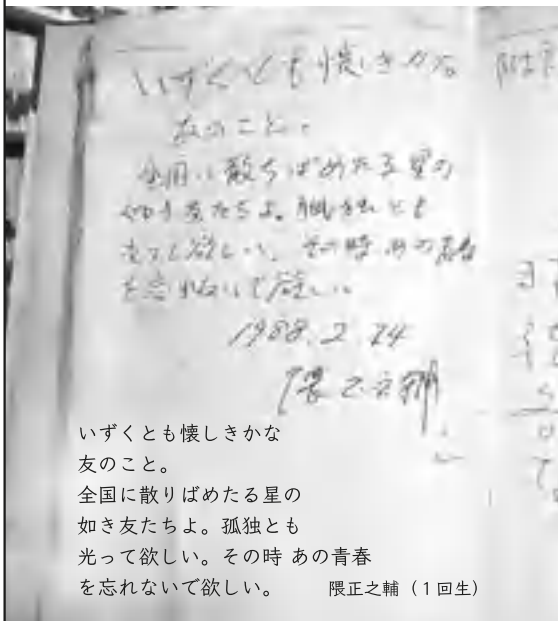 いずくとも懐しきかな
友のこと。
全国に散ちばめたる星の
如き友たちよ。孤独とも
光って欲しい。その時 あの青春
を忘れないで欲しい。
1988.2.24
隈正之輔
いずくとも懐しきかな
友のこと。
全国に散りばめたる星の
如き友たちよ。孤独とも
光って欲しい。その時 あの青春
を忘れないで欲しい。 隈正之輔(1回生)